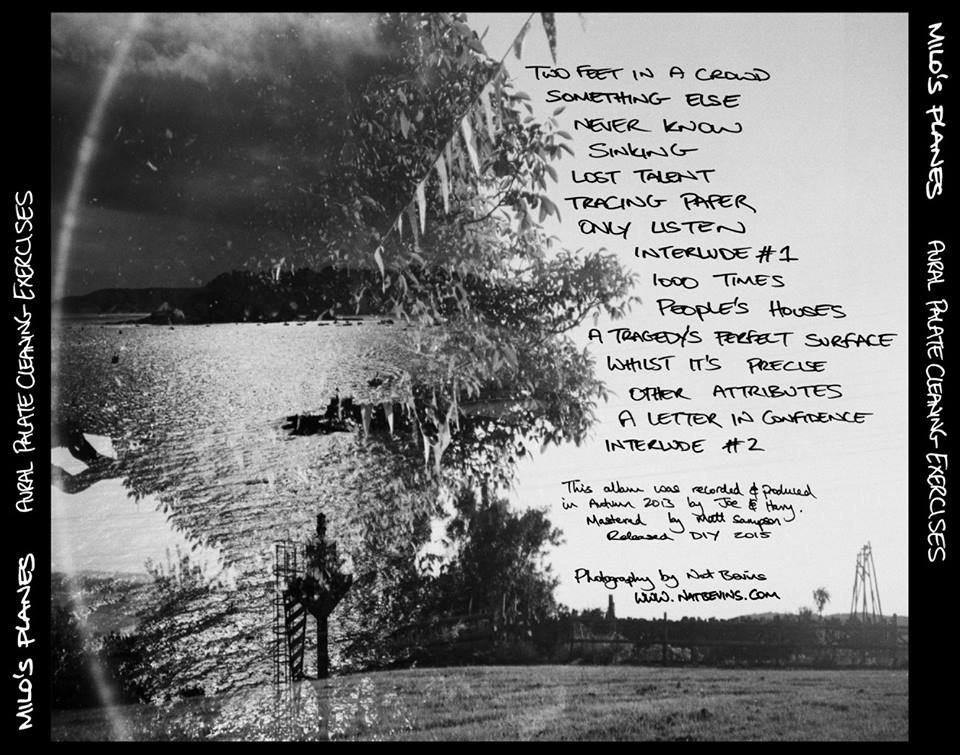 MILO'S PLANES AURAL PALATE CLEANING EXERCISES
TWO FEET IN A CROWD
SOMETHING ELSE
NEVER KNOW
SINKING
LOST TALENT
TRACING PAPER
ONLY LISTEN
INTERLUDE #1
1000 TIMES
PEOPLE'S HOUSES
A TRAGEDY'S PERFECT SURFACE
WHILST IT'S PRECISE
OTHER ATTRIBUTES
A LETTER IN CONFIDENCE
INTERLUDE #2
This album was recorded & produced
in Autumn 2013 by Joe & Harry.
Mastered by Matt Sampson
Released DIY 2015
Photography by Nat Bevins
WWW.NATBEVINS.COM
MILO'S PLANES AURAL PALATE CLEANING EXERCISES